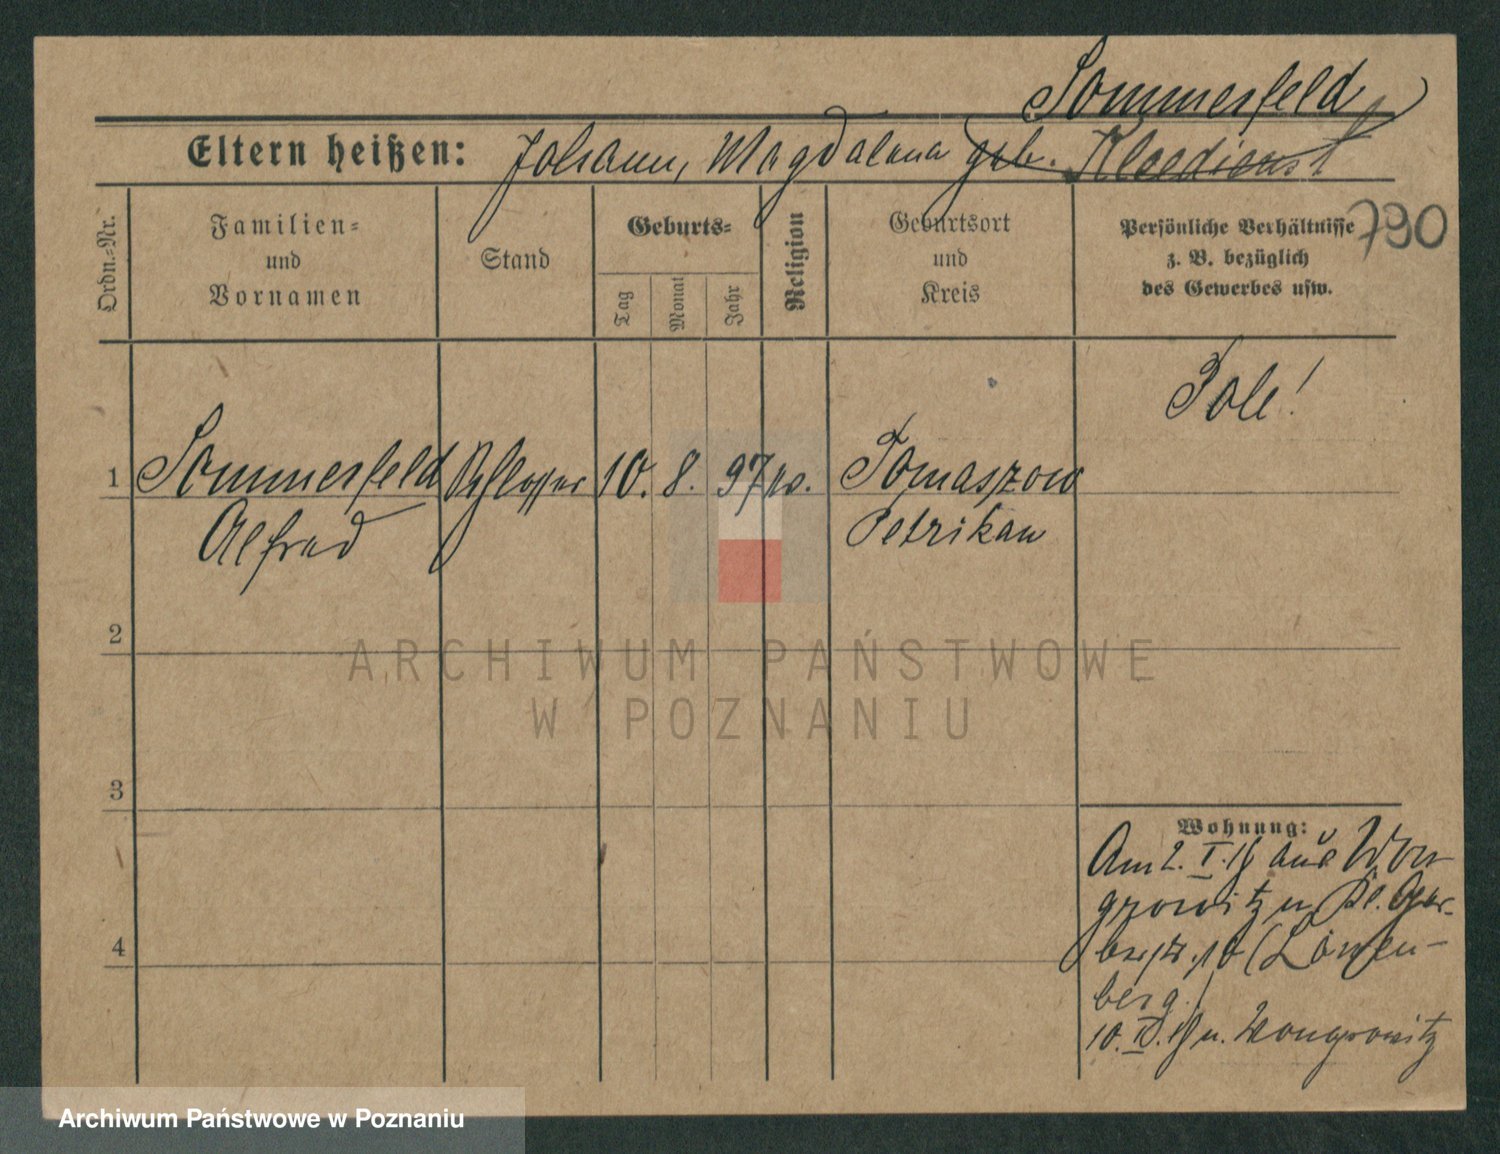 Sommerfeld
Eltern heißen: Johann, Magdalena geb. Kleedienst
790
Ordn.-Nr.
Familien-
und
Vornamen
Stand
Geburts-
Tag
Monat
Jahr
Religion
Geburtsort
und
Kreis
Persönliche Verhältnisse
z. B. bezüglich
des Gewerbes usw.
Pole!
1 Sommerfeld Schlosser 10. 8. 97 Tomaszow
Alfred Petrikau
2
3
4
Wohnung:
Am 2. I. 18 aus Won-
growitz n. Kl. Ger-
berstr. 10 (Löwen-
berg)
10. 18 n. Wongrowitz
ARCHIWUM PAŃSTWOWE
W POZNANIU
Archiwum Państwowe w Poznaniu